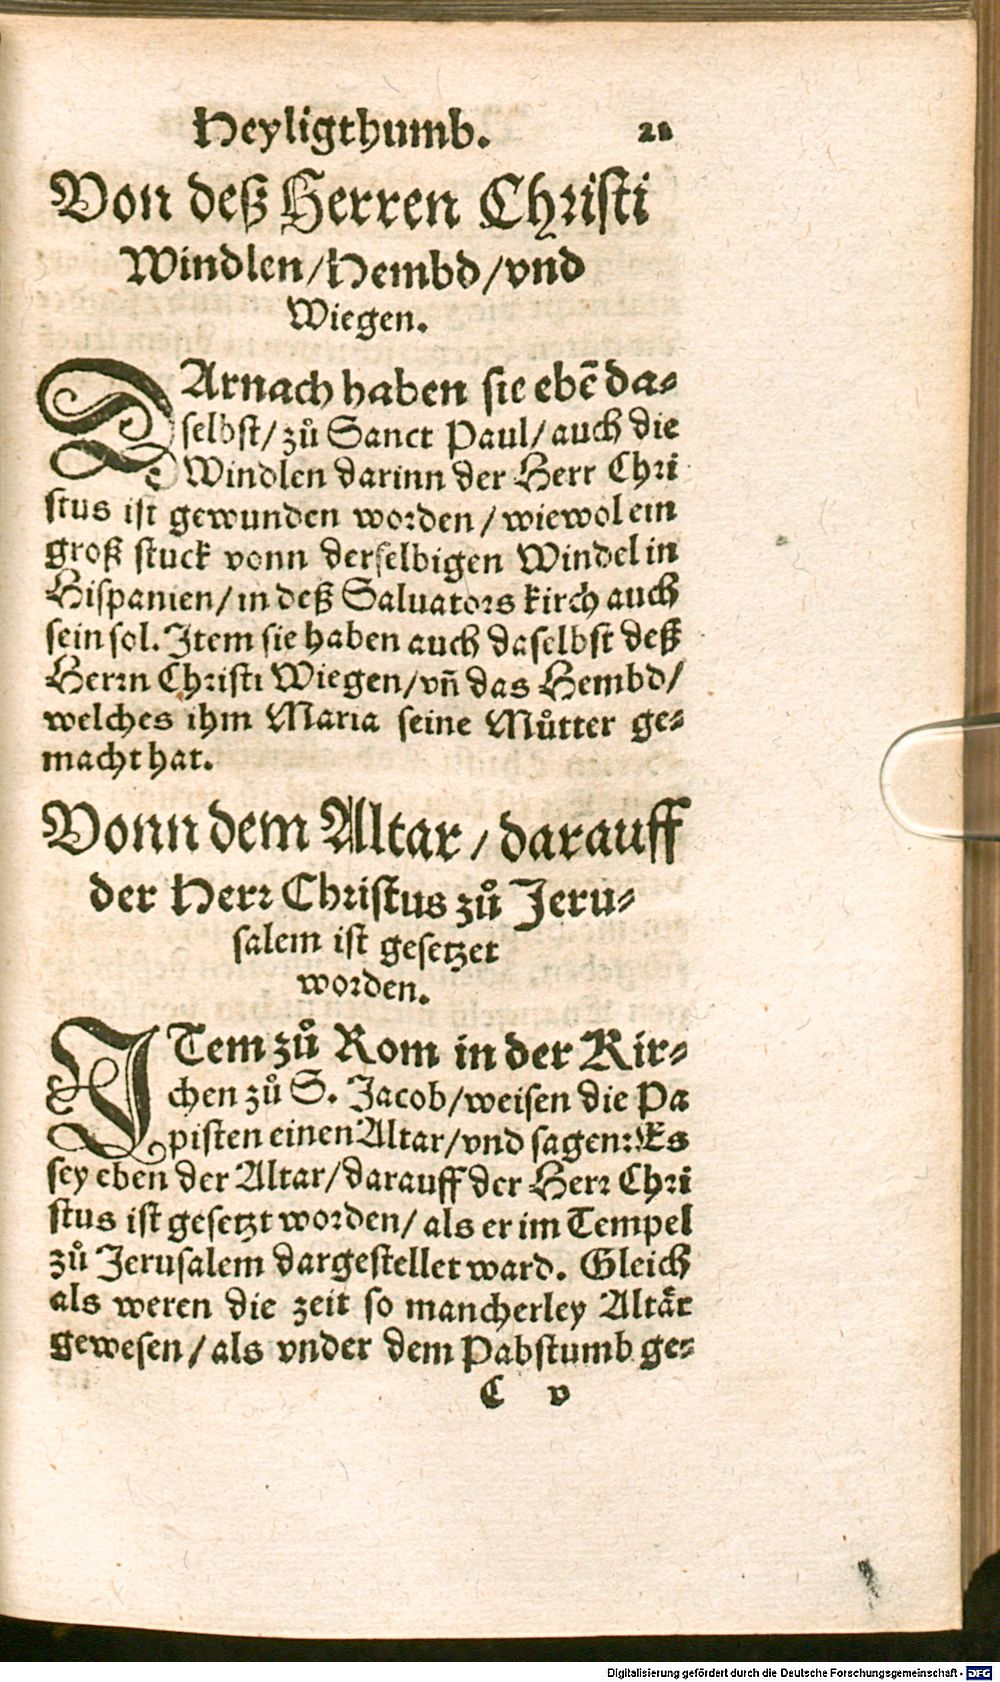 Heyligthumb. 21
Von deß Herren Christi
Windlen/Hembd/vnd
Wiegen.
DArnach haben sie ebē da⸗
selbst/zů Sanct Paul/auch die
Windlen darinn der Herr Chri
stus ist gewunden worden/wiewol ein
groß stuck vonn derselbigen Windel in
Hispanien/in deß Saluators kirch auch
sein sol. Item sie haben auch daselbst deß
Herrn Christi Wiegen/vñ das Hembd/
welches ihm Maria seine Můtter ge⸗
macht hat.
Vonn dem Altar/darauff
der Herr Christus zů Jeru⸗
salem ist gesetzet
worden.
ITem zů Rom in der Kir⸗
chen zů S. Jacob/weisen die Pa
pisten einen Altar/vnd sagen: Es
sey eben der Altar/darauff der Herr Chri
stus ist gesetzt worden/als er im Tempel
zů Jerusalem dargestellet ward. Gleich
als weren die zeit so mancherley Altär
gewesen/als vnder dem Pabstumb ge⸗
C v
Digitalisierung gefördert durch die Deutsche Forschungsgemeinschaft - DFG